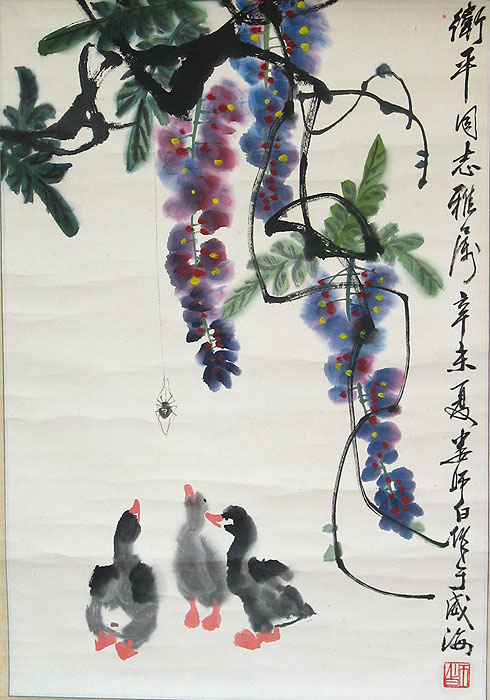 衛平同志雅属辛未夏娄师白作于威海